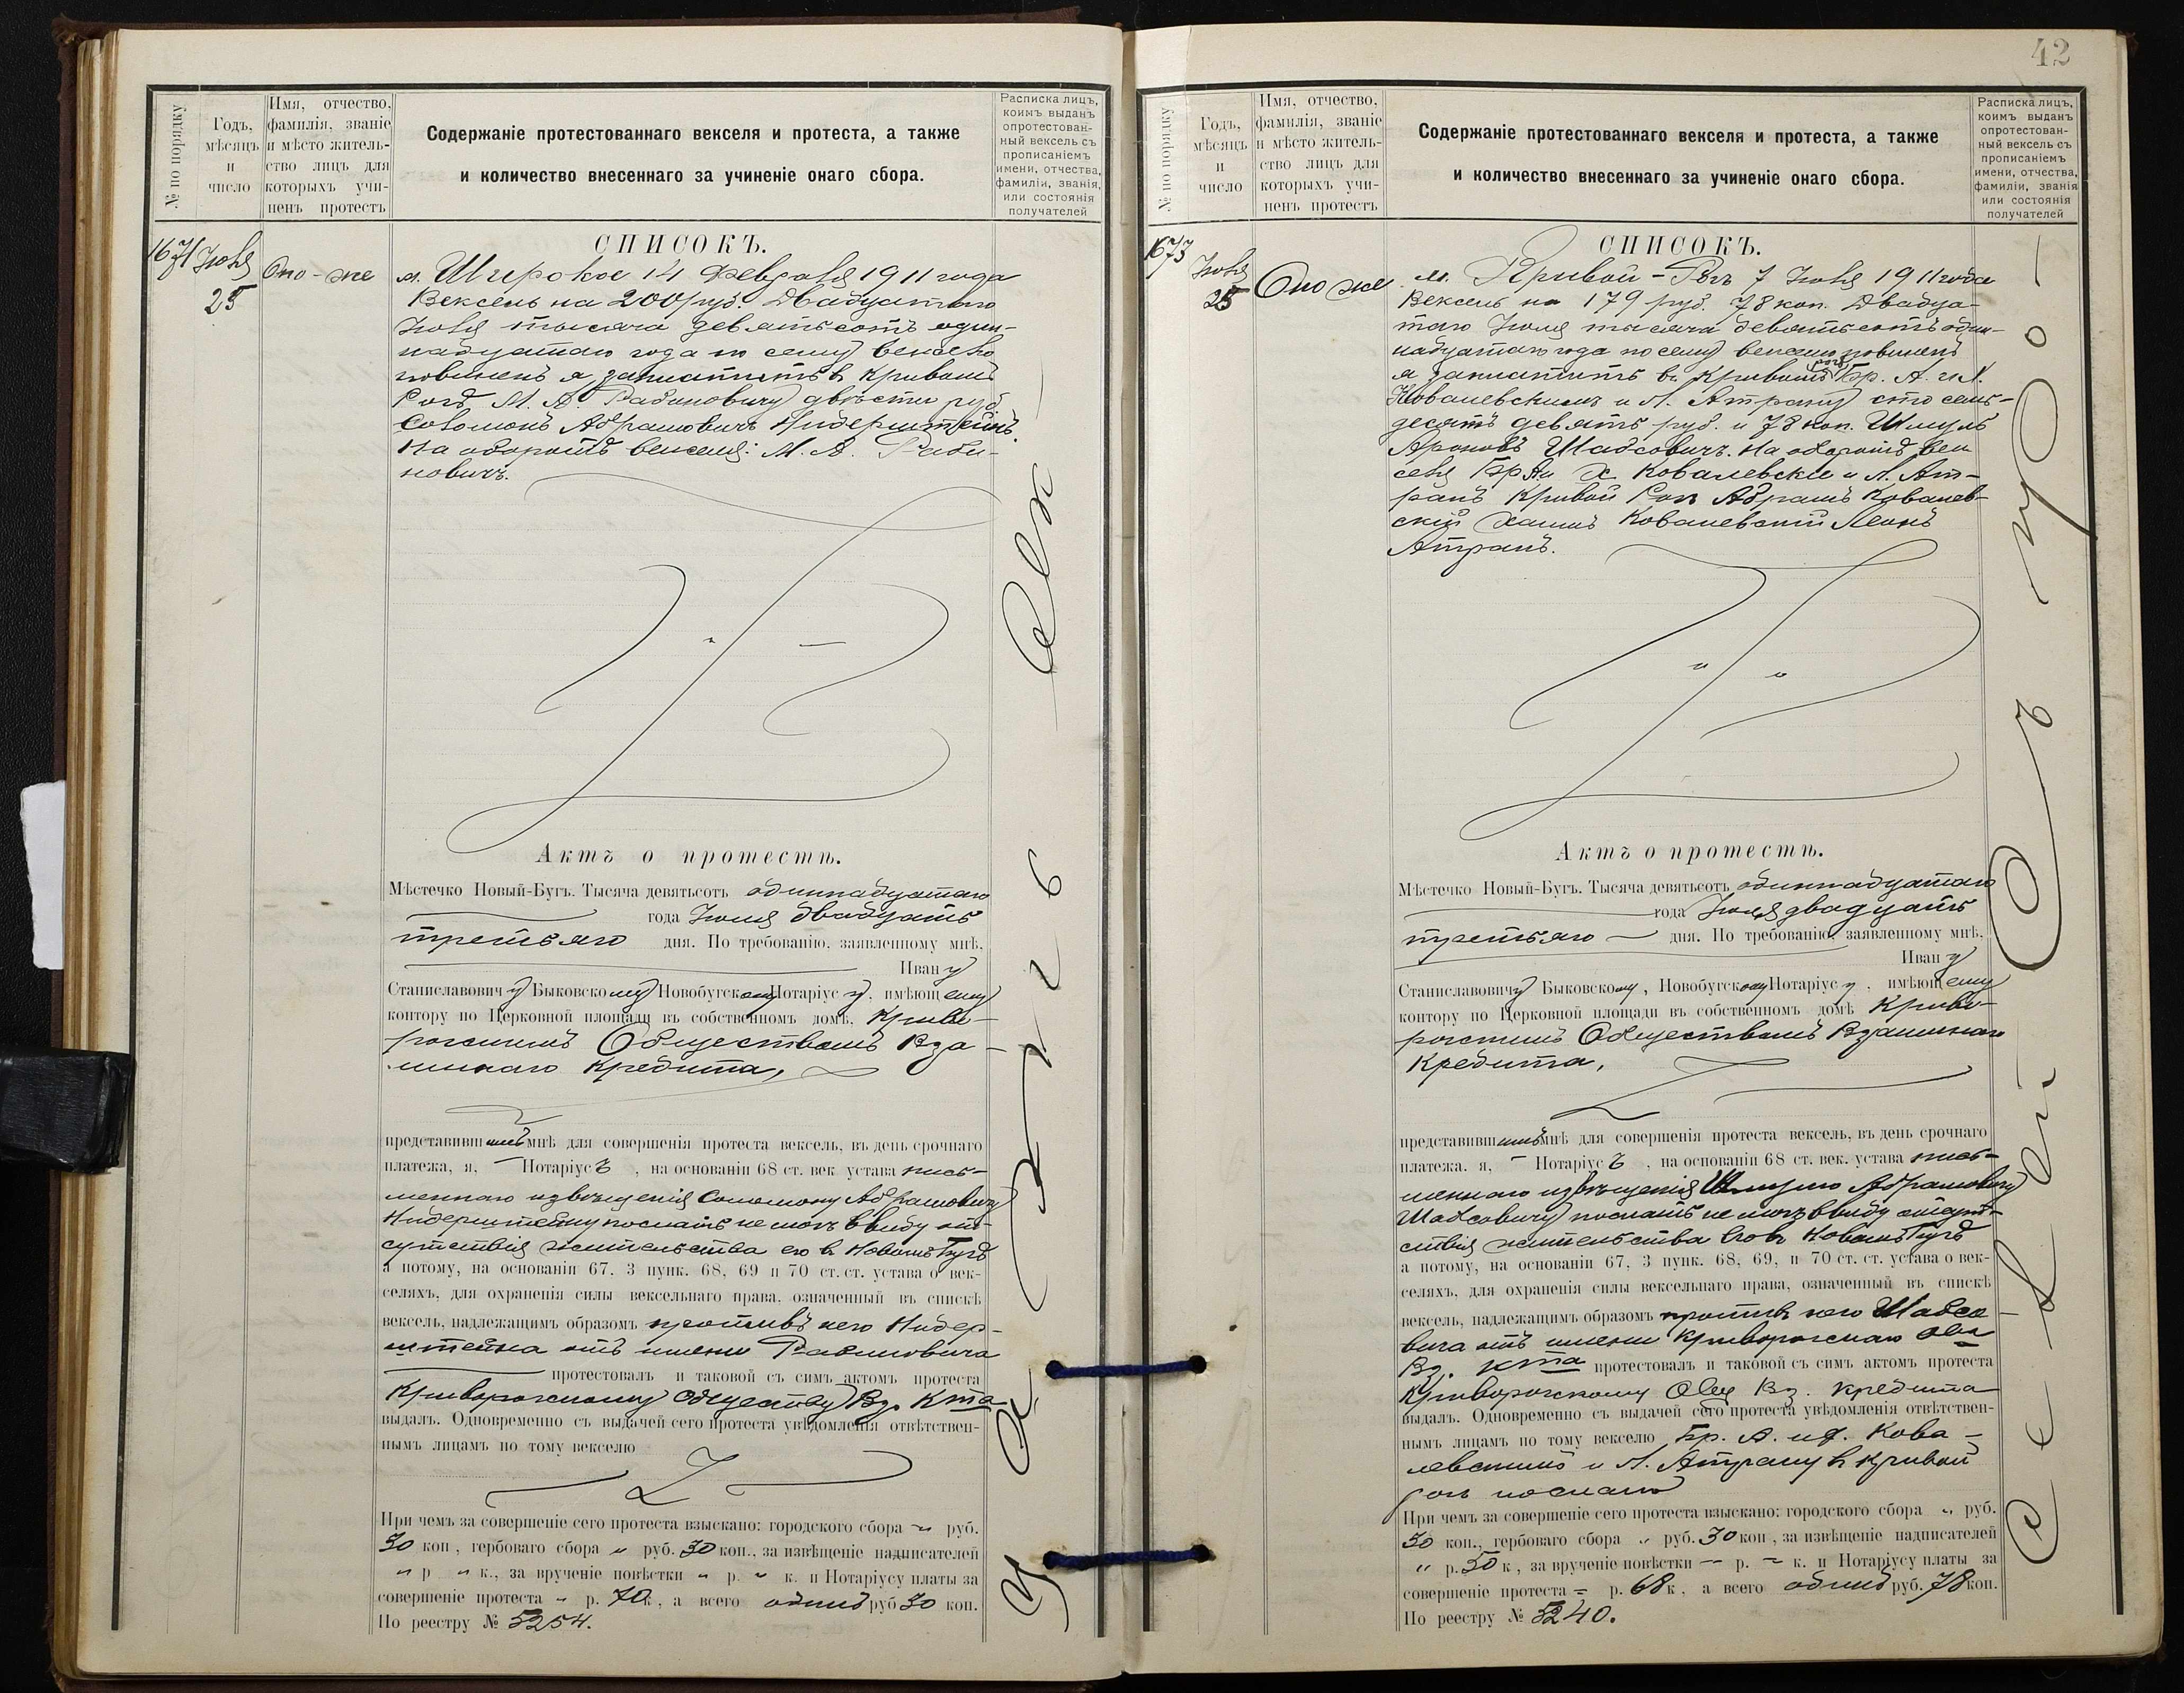 № по порядку
Годъ,
мѣсяцъ
и
число
Имя, отчество,
фамилія, званіе
и мѣсто житель-
ство лицъ для
которыхъ учи-
ненъ протестъ
Содержаніе протестованнаго векселя и протеста, а также
и количество внесеннаго за учиненіе онаго сбора.
Расписка лицъ,
коимъ выданъ
опротестован-
ный вексель съ
прописаніемъ
имени, отчества,
фамиліи, званія,
или состоянія
получателей
1671 Іюля
25
Оно-же
СПИСОКЪ.
м. Широкое 14 Февраля 1911 года
Вексель на 200 руб. Двадцатаго
Іюля тысяча девятьсотъ один-
надцатаго года по сему векселю
повиненъ я заплатить въ Кривомъ
Рогѣ М. А. Рабиновичу двѣсти руб.
Соломонъ Абрамовичъ Нидерштейнъ.
На оборотѣ векселя: М. А. Раби-
новичъ.
Актъ о протестѣ.
Мѣстечко Новый-Бугъ. Тысяча девятьсотъ одиннадцатаго
года Іюля двадцать
третьяго дня. По требованію, заявленному мнѣ,
Ивану
Станиславовичу Быковскому Новобугскому Нотаріусу, имѣющему
контору по Церковной площади въ собственномъ домѣ, Криво-
рожскимъ Обществомъ Вза-
имнаго Кредита,
представившимъ мнѣ для совершенія протеста вексель, въ день срочнаго
платежа, я, Нотаріусъ, на основаніи 68 ст. век. устава пись-
меннаго извѣщенія Соломону Абрамовичу
Нидерштейну послать не могъ ввиду от-
сутствія жительства его въ Новомъ Бугѣ
а потому, на основаніи 67, 3 пунк. 68, 69 и 70 ст. ст. устава о век-
селяхъ, для охраненія силы вексельнаго права, означенный въ спискѣ
вексель, надлежащимъ образомъ противъ него Нидер-
штейна отъ имени Рабиновича
протестовалъ и таковой съ симъ актомъ протеста
Криворожскому Обществу Вз. Кта
выдалъ. Одновременно съ выдачей сего протеста увѣдомленія отвѣтствен-
нымъ лицамъ по тому векселю
При чемъ за совершеніе сего протеста взыскано: городского сбора " руб.
30 коп., гербоваго сбора " руб. 30 коп., за извѣщеніе надписателей
" р " к., за врученіе повѣстки " р. " к. и Нотаріусу платы за
совершеніе протеста " р. 70 к., а всего одинъ руб 30 коп.
По реестру № 5254.
42
№ по порядку
Годъ,
мѣсяцъ
и
число
Имя, отчество,
фамилія, званіе
и мѣсто житель-
ство лицъ для
которыхъ учи-
ненъ протестъ
Содержаніе протестованнаго векселя и протеста, а также
и количество внесеннаго за учиненіе онаго сбора.
Расписка лицъ,
коимъ выданъ
опротестован-
ный вексель съ
прописаніемъ
имени, отчества,
фамиліи, званія
или состоянія
получателей
1673
Іюля
25
Оно же
СПИСОКЪ.
м. Кривой-Рогъ 7 Іюня 1911 года
Вексель на 179 руб. 78 коп. Двадца-
таго Іюля тысяча девятьсотъ один-
надцатаго года по сему векселю повиненъ
я заплатить въ Кривомъ Рогѣ Бр. А. и Х.
Ковалевскимъ и Л. Атрану сто семь-
десятъ девять руб. и 78 коп. Шмуль
Ароновъ Шабсовичъ. На оборотѣ век
селя Бр А и Х Ковалевскіе и Л. Ат-
ранъ Кривой Рогъ Абрамъ Ковалев-
скій Хаимъ Ковалевскій Леонъ
Атранъ.
Актъ о протестѣ.
Мѣстечко Новый-Бугъ. Тысяча девятьсотъ одиннадцатаго
года Іюля двадцать
третьяго дня. По требованію, заявленному мнѣ,
Ивану
Станиславовичу Быковскому, Новобугскому Нотаріусу, имѣющему
контору по Церковной площади въ собственномъ домѣ Криво-
рожскимъ Обществомъ Взаимнаго
Кредита,
представившимъ мнѣ для совершенія протеста вексель, въ день срочнаго
платежа. я, Нотаріусъ, на основаніи 68 ст. век. устава пись-
меннаго извѣщенія Шмулю Абрамовичу
Шабсовичу послать не могъ ввиду отсут-
ствія жительства его въ Новомъ Бугѣ
а потому, на основаніи 67, 3 пунк. 68, 69, и 70 ст. ст. устава о век-
селяхъ, для охраненія силы вексельнаго права, означенный въ спискѣ
вексель, надлежащимъ образомъ противъ него Шабсо-
вича отъ имени Криворожскаго Обва
Вз. Кта протестовалъ и таковой съ симъ актомъ протеста
Криворожскому Общ Вз. Кредита
выдалъ. Одновременно съ выдачей сего протеста увѣдомленія отвѣтствен-
нымъ лицамъ по тому векселю Бр. А. и Х. Кова-
левскимъ и Л. Атрану въ Кривой
Рогъ послано
При чемъ за совершеніе сего протеста взыскано: городского сбора " руб.
30 коп., гербоваго сбора " руб. 30 коп, за извѣщеніе надписателей
" р. 50 к, за врученіе повѣстки — р. — к. и Нотаріусу платы за
совершеніе протеста = р. 68 к, а всего одинъ руб. 78 коп.
По реестру № 5240.